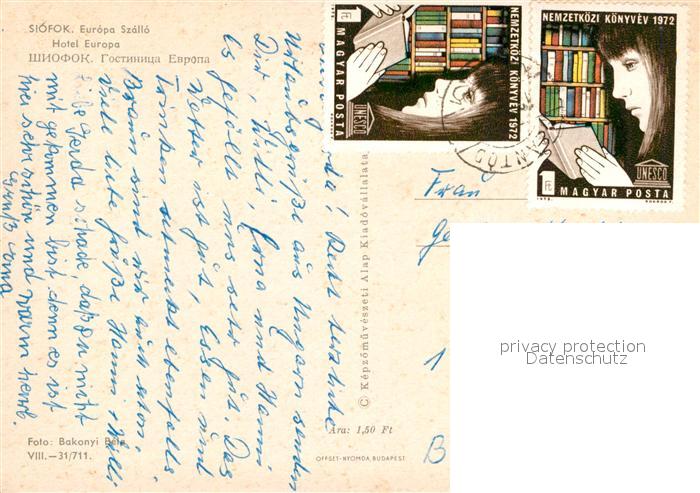 SIÓFOK. Európa Szálló
Hotel Europa
ШИОФОК. Гостиница Европа
Recht herzliche
Urlaubsgrüße aus Ungarn senden
Dir Willi, Erna und Hanni
Es gefällt uns sehr gut. Das
Wetter ist gut, Essen und
Trinken schmeckt ebenfalls.
Braun sind wir auch schon.
Viele liebe Grüße Hanni + Willi
Liebe Gerda schade, daß du nicht
mit gekommen bist denn es ist
hier sehr schön und warm
Gruß Erna
Foto: Bakonyi Béla
VIII.—31/711.
© Képzőművészeti Alap Kiadóvállalata
Ára: 1,50 Ft
OFFSET-NYOMDA, BUDAPEST
1 Ft
MAGYAR POSTA
NEMZETKÖZI KÖNYVÉV 1972
UNESCO
NEMZETKÖZI KÖNYVÉV 1972
UNESCO
1 Ft
MAGYAR POSTA
Frau
1
B
privacy protection
Datenschutz